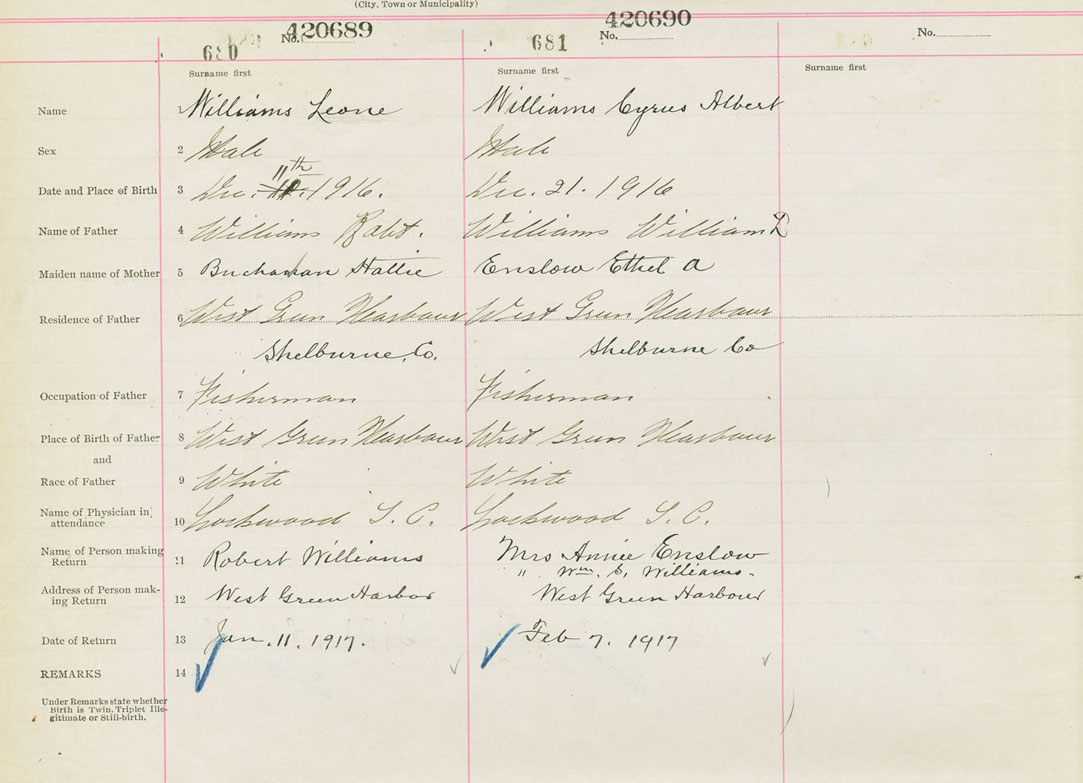 (City, Town or Municipality)
No. 420689 No. 420690 No.
680 681
Surname first Surname first Surname first
Name 1 Williams Leone Williams Cyrus Albert
Sex 2 Male Male
11th
Date and Place of Birth 3 Dec. 1916. Dec. 21. 1916
Name of Father 4 Williams Robt. Williams William
Maiden name of Mother 5 Buchanan Hattie Enslow Ethel A
Residence of Father 6 West Green Harbour West Green Harbour
Shelburne, Co. Shelburne Co
Occupation of Father 7 Fisherman Fisherman
Place of Birth of Father 8 West Green Harbour West Green Harbour
and
Race of Father 9 White White
Name of Physician in
attendance 10 Lockwood T. C. Lockwood T. C.
Name of Person making
Return 11 Robert Williams Mrs Annie Enslow
" Wm. E. Williams.
Address of Person mak-
ing Return 12 West Green Harbor West Green Harbour
Date of Return 13 Jan. 11. 1917. Feb 7. 1917
REMARKS 14
Under Remarks state whether
Birth is Twin, Triplet Ille-
gitimate or Still-birth.